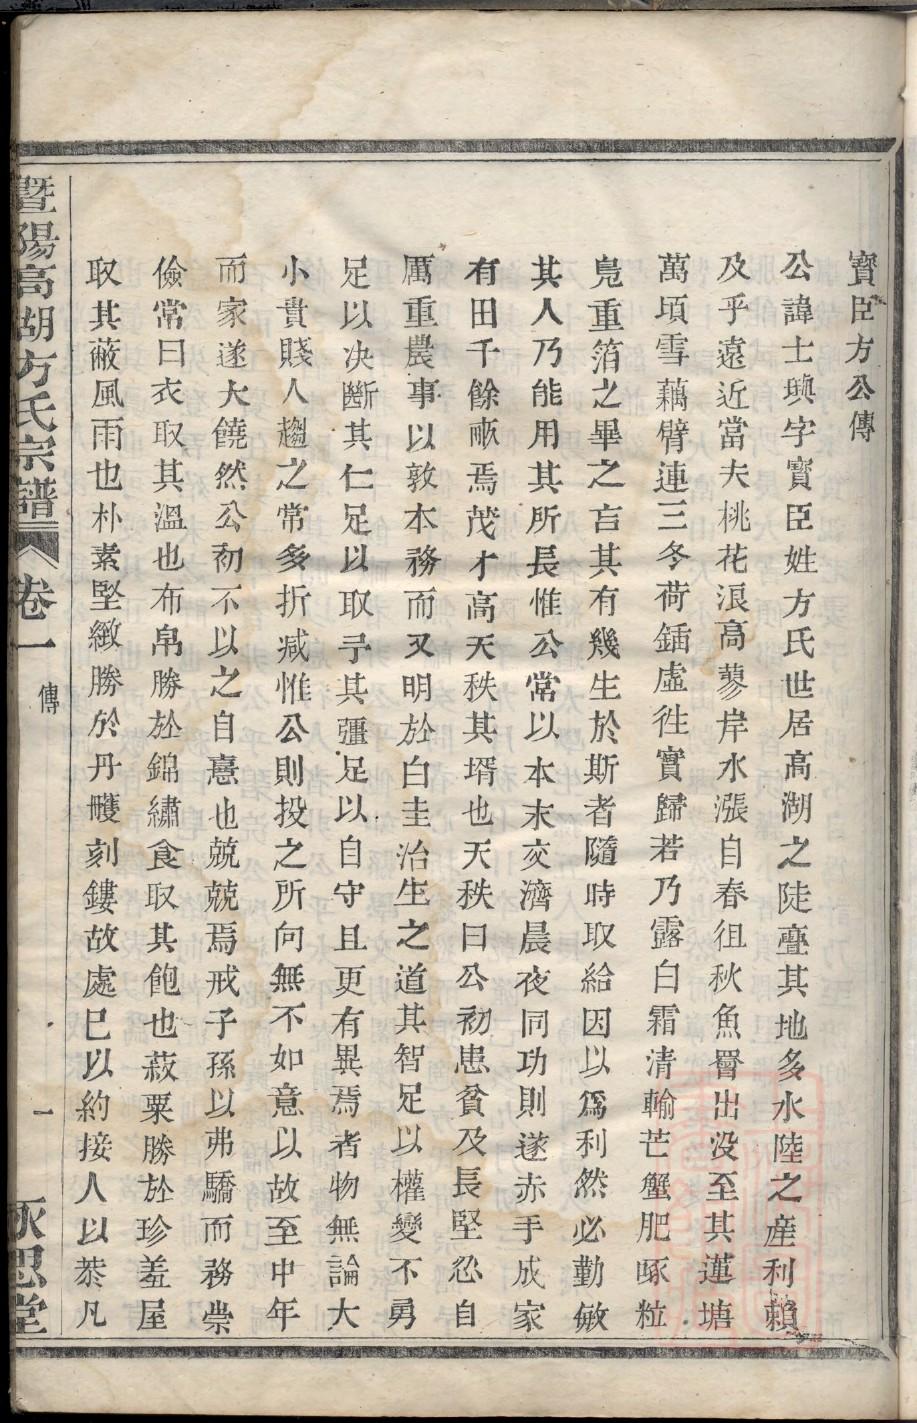 寶臣方公傳
公諱士璵字寶臣姓方氏世居高湖之陡亹其地多水陸之産利賴
及乎遠近當夫桃花浪高蓼岸水漲自春徂秋魚罾出没至其蓮塘
萬頃雪藕臂連三冬荷鍤虛徃實歸若乃露白霜清輸芒蟹肥啄粒
鳧重箔之畢之言其有幾生於斯者隨時取給因以爲利然必勤敏
其人乃能用其所長惟公常以本末交濟晨夜同功則遂赤手成家
有田千餘畝焉茂才高天秩其壻也天秩曰公初患貧及長堅忍自
厲重農事以敦本務而又明於白圭治生之道其智足以權變不勇
足以决斷其仁足以取予其彊足以自守且更有異焉者物無論大
小貴賤人趨之常多折减惟公則投之所向無不如意以故至中年
而家遂大饒然公初不以之自憙也兢兢焉戒子孫以弗驕而務崇
儉常曰衣取其溫也布帛勝於錦繡食取其飽也菽粟勝於珍羞屋
取其蔽風雨也朴素堅緻勝於丹雘刻鏤故處巳以約接人以恭凡
暨陽高湖方氏宗譜 卷一 傳 一 永思堂